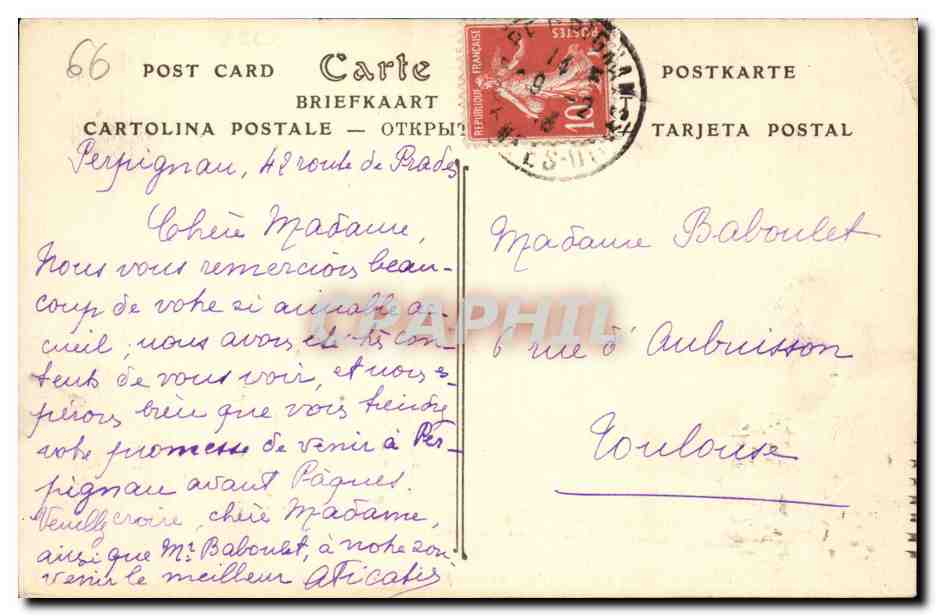 66
POST CARD Carte POSTKARTE
BRIEFKAART
CARTOLINA POSTALE — ОТКРЫТ TARJETA POSTAL
REPUBLIQUE FRANÇAISE
POSTES
10
PERPIGNAN
14
Perpignan, 42 route de Prades
Chère Madame,
Nous vous remercions beau-
coup de votre si aimable ac-
cueil, nous avons été très con-
tents de vous voir, et nous es-
pérons bien que vous tiendrez
votre promesse de venir à Per-
pignan avant Pâques.
Veuillez croire, chère Madame,
ainsi que Mr Baboulet, à notre sou
venir le meilleur
Madame Baboulet
6 rue d'Aubuisson
Toulouse
CPAPHIL